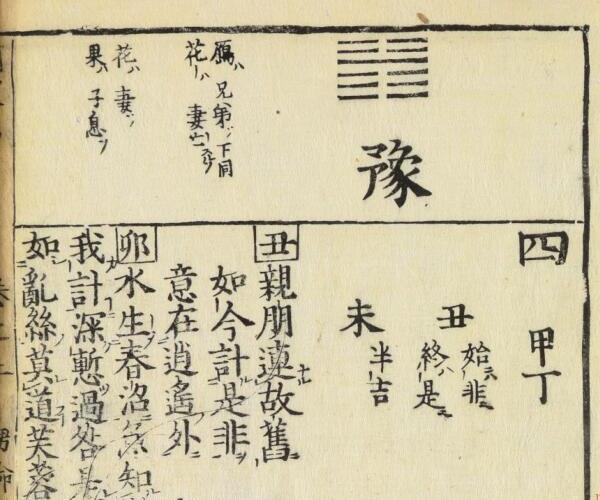 豫
鴈ハ兄弟ゾ下同
花ハ妻亡
花ハ妻ゾ
果ハ子息ゾ
四
甲丁
丑
始ハ非ニ
終ハ是ニ
未
半吉
丑親朋連故舊
如今計是非
意在逍遙外
卯水生春沼知
我計深慙過咎
如亂絲莫道芙蓉